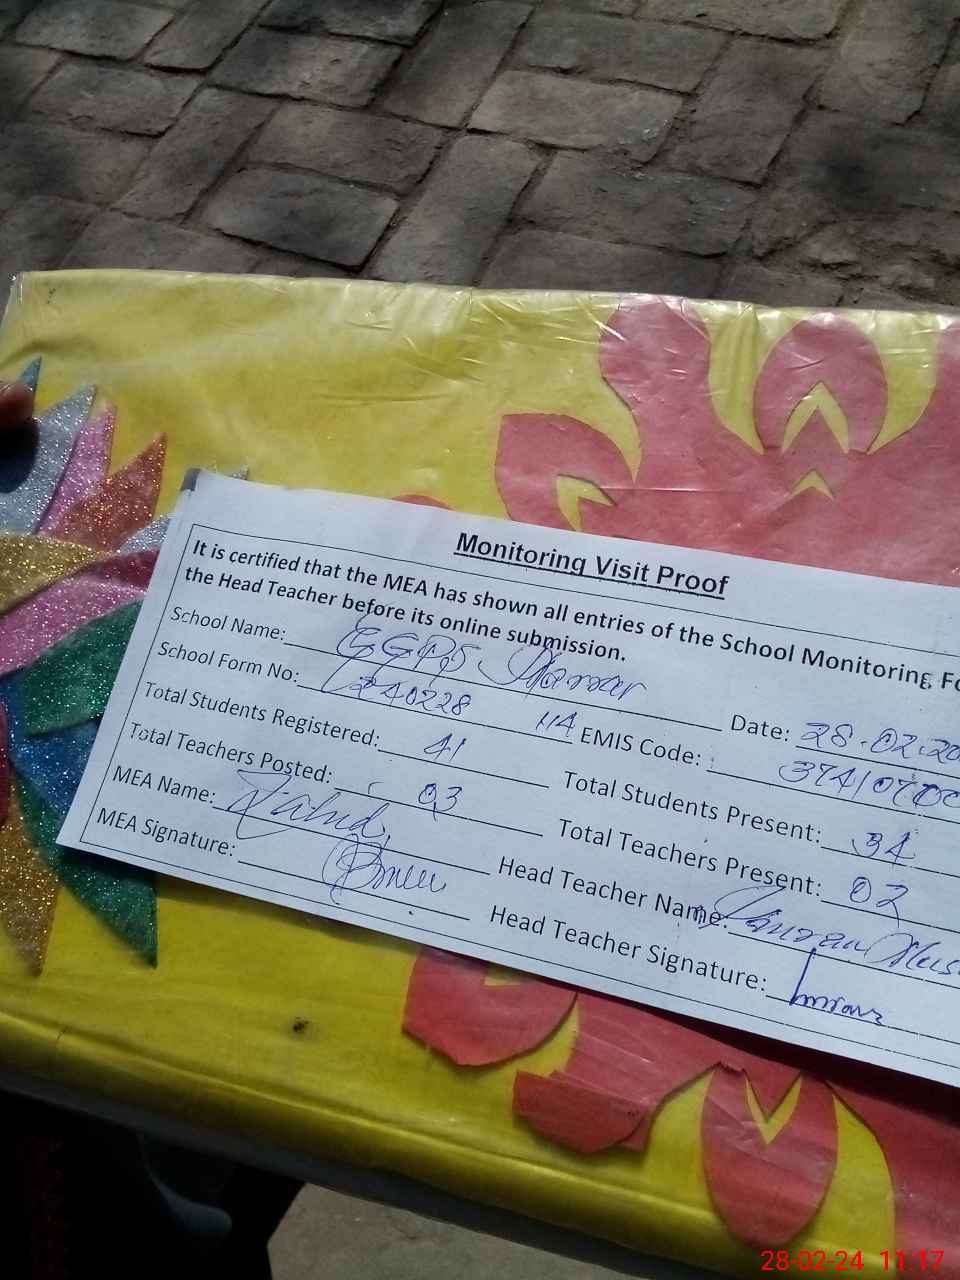 Monitoring Visit Proof
It is certified that the MEA has shown all entries of the School Monitoring Fo
the Head Teacher before its online submission.
School Name: GGPS Date: 28.02.20
School Form No: 240228 114 EMIS Code: 374107
Total Students Registered: 41 Total Students Present: 34
Total Teachers Posted: 03 Total Teachers Present: 02
MEA Name: Zahid Head Teacher Name:
MEA Signature: Head Teacher Signature:
28-02-24 11:17